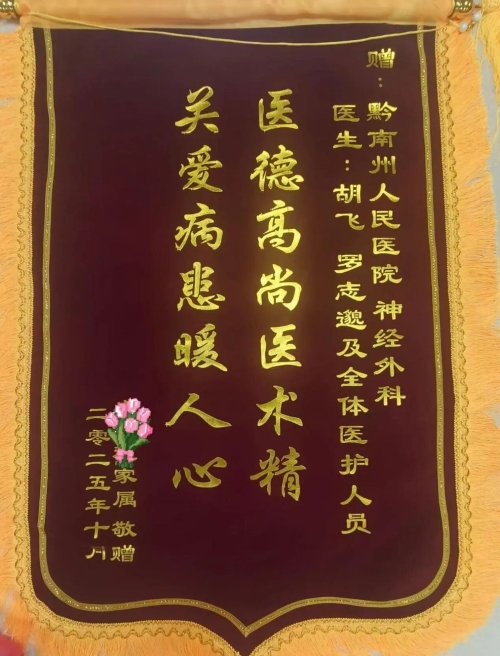 赠：黔南州人民医院 神经外科
医生：胡飞 罗志邈及全体医护人员
医德高尚医术精
关爱病患暖人心
家属敬赠
二零二五年十月